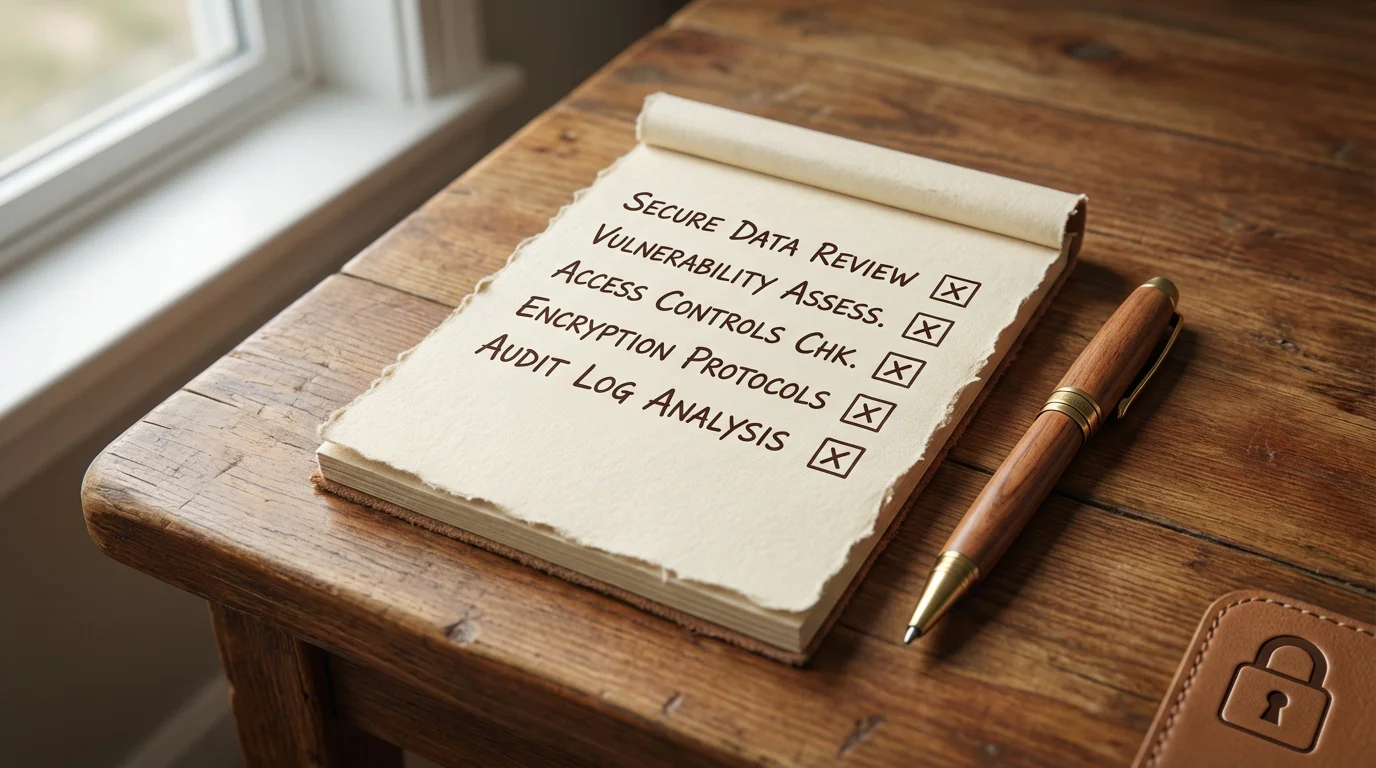 Secure Data Review ☒
Vulnerability Assess. ☒
Access Controls Chk. ☒
Encryption Protocols ☒
Audit Log Analysis ☒